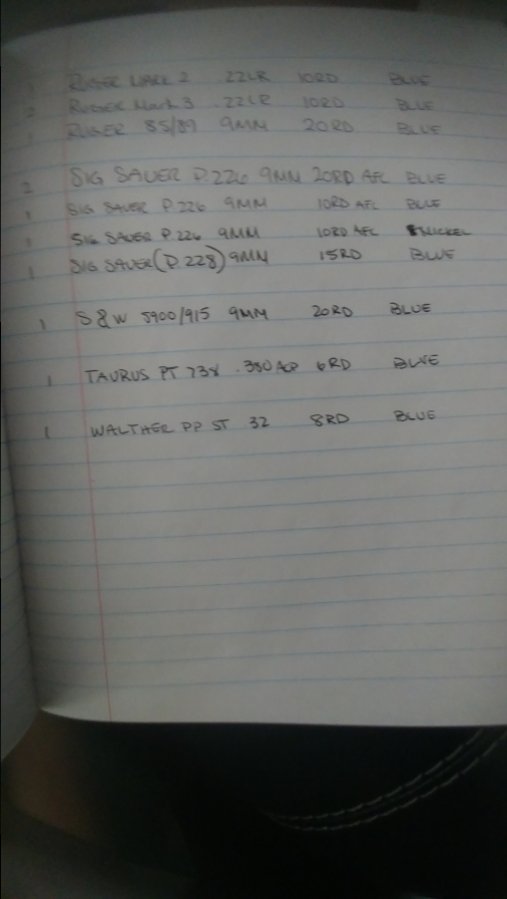 1 RUGER MARK 2 .22LR 10RD BLUE
2 RUGER Mark 3 .22LR 10RD BLUE
1 RUGER 85/89 9MM 20RD BLUE
2 SIG SAUER P.226 9MM 20RD AFC BLUE
1 SIG SAUER P.226 9MM 10RD AFC BLUE
1 SIG SAUER P.226 9MM 10RD AFC NICKEL
1 SIG SAUER (P.228) 9MM 15RD BLUE
1 S&W 5900/915 9MM 20RD BLUE
1 TAURUS PT 738 .380 ACP 6RD BLUE
1 WALTHER PP ST 32 8RD BLUE